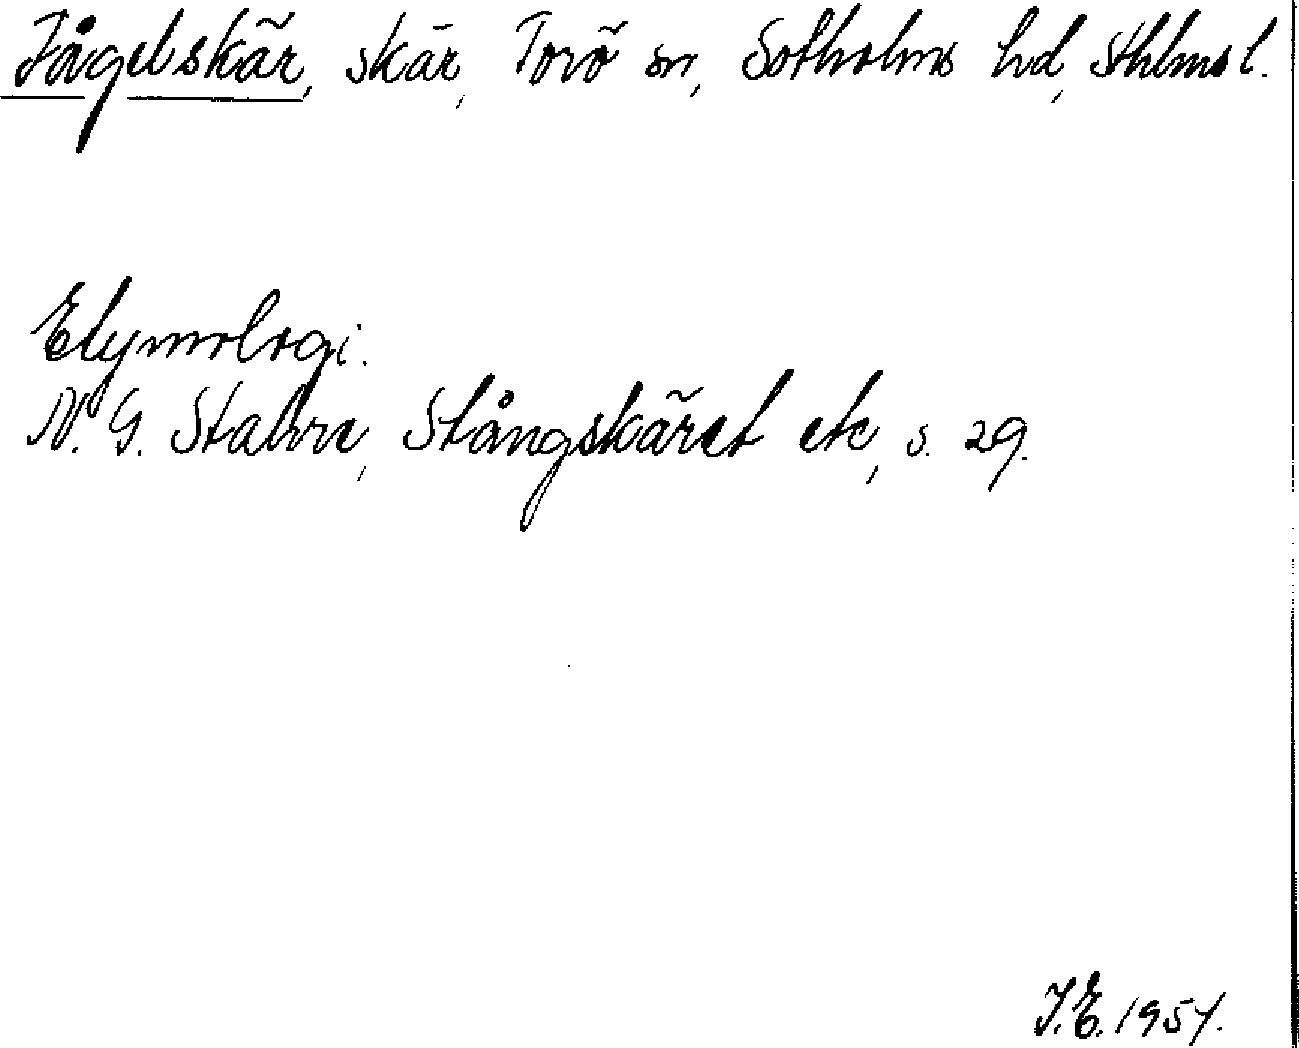 Fågelskär, skär, Torö sn, Sotholms hd, Sthlms l.
Etymologi.
N. G. Stahre, Stångskäret etc, s. 29.
I.E. 1957.